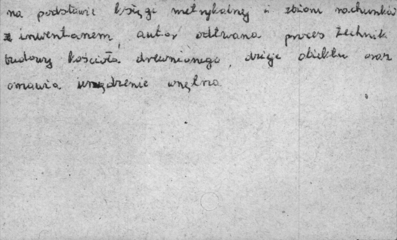 na podstawie księgi metrykalnej i zbioru rachunków
z inwentarzem, autor odtwarza proces technik
budowy kościoła drewnianego, dzieje obiektu oraz
omawia urządzenie wnętrza.